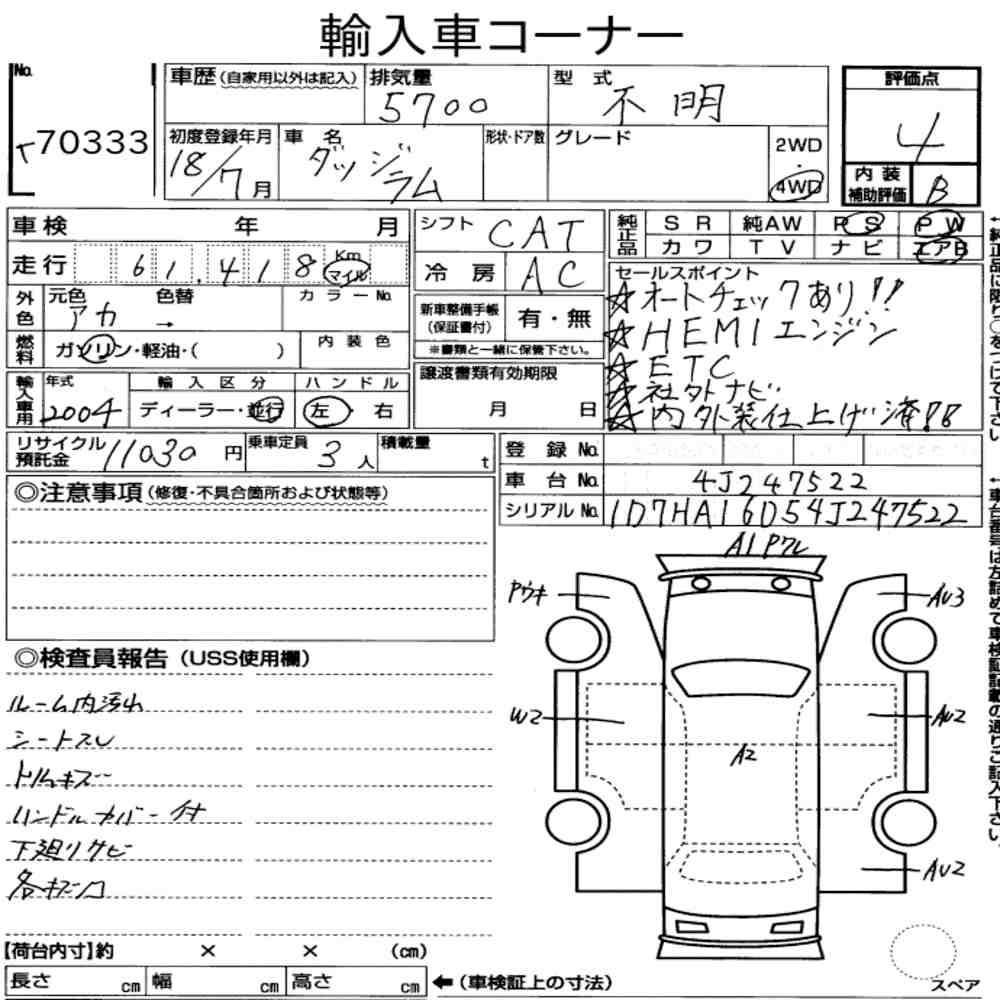 輸入車コーナー
No.
70333
車歴(自家用以外は記入)
排気量
5700
型式
不明
評価点
4
初度登録年月
18/7月
車名
ダッジラム
形状・ドア数
グレード
2WD
4WD
内装補助評価
B
車検 年 月
シフト
CAT
純正品
SR 純AW PS PW
カワ TV ナビ エアB
走行
61,418
Km
マイル
冷房
AC
セールスポイント
☆オートチェックあり!!
☆HEMIエンジン
☆ETC
☆社外ナビ
☆内外装仕上げ済!!
外色
元色 色替
アカ →
カラーNo.
新車整備手帳(保証書付)
有・無
※書類と一緒に保管下さい。
燃料
ガソリン・軽油・( )
内装色
譲渡書類有効期限
月 日
輸入車用
年式
2004
輸入区分
ディーラー・並行
ハンドル
左・右
リサイクル預託金
11030円
乗車定員
3人
積載量
t
登録No.
車台No.
4J247522
シリアルNo.
1D7HA16D54J247522
◎注意事項(修復・不具合箇所および状態等)
A1 Pワレ
Pウキ
AU3
W2
A2
AU2
AU2
◎検査員報告(USS使用欄)
ルーム内汚れ
シートスレ
トリムキズ
ハンドルカバー付
下廻りサビ
各キズ凹
【荷台内寸】約 × × (cm)
長さ cm 幅 cm 高さ cm
←(車検証上の寸法)
スペア
←純正品に限り○をつけて下さい。
←車台番号は左詰めで車検証記載の通りご記入下さい。